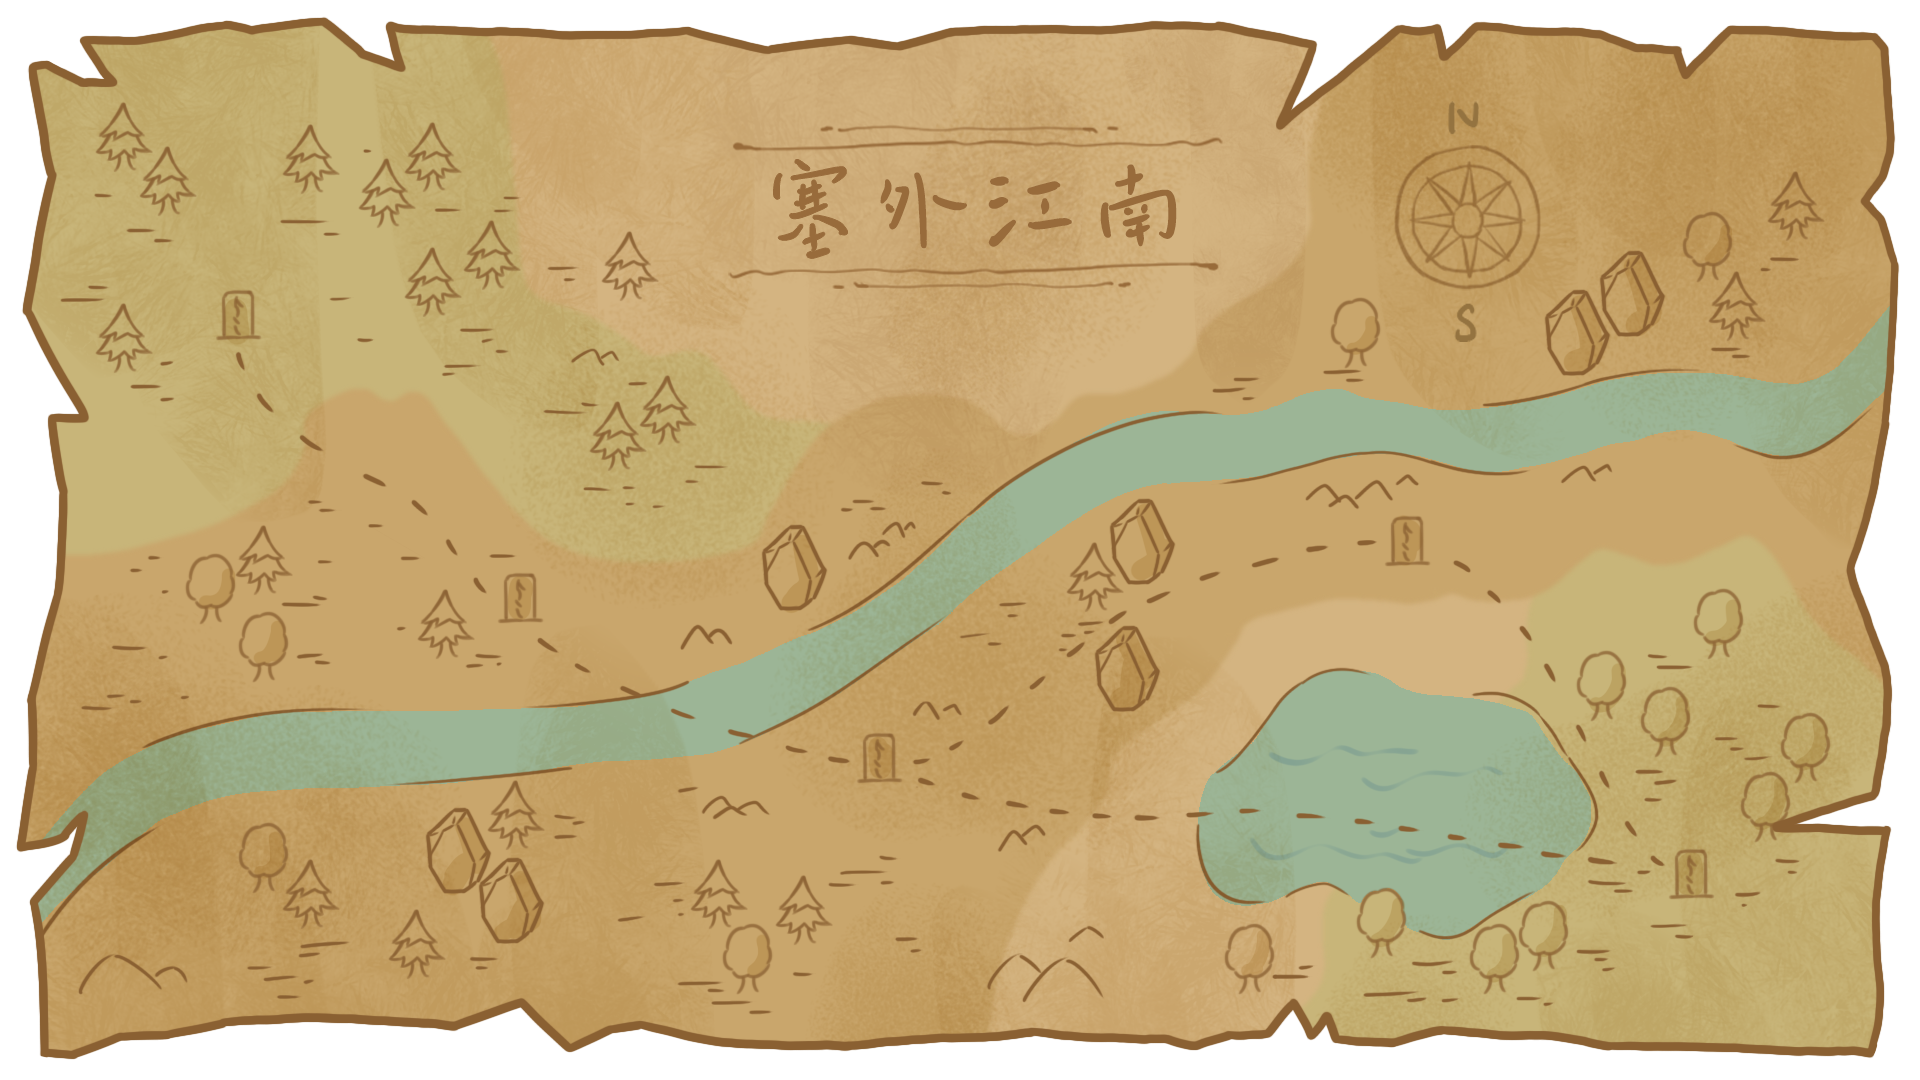 塞外江南
N
S